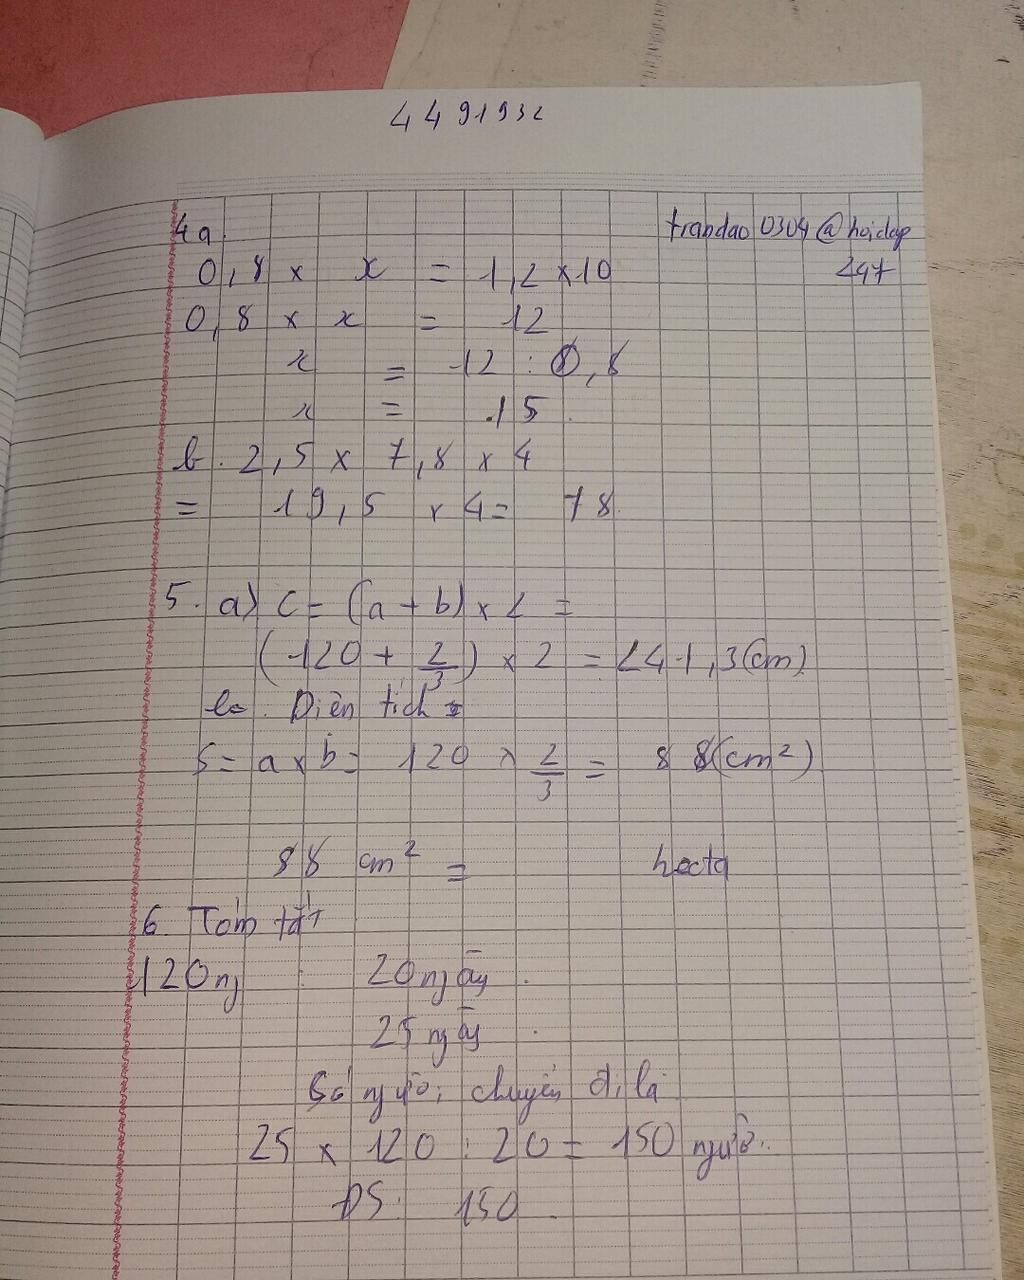 4491932
4a. trandao0304@hoidap
0,8 x x = 1,2 x 10 247
0,8 x x = 12
x = 12 : 0,8
x = 15.
b. 2,5 x 7,8 x 4
= 19,5 x 4 = 78
5. a) C = (a + b) x 2 =
(120 + 2/3) x 2 = 241,3 (cm)
b. Diện tích =
S = a x b = 120 x 2/3 = 88 (cm²)
88 cm² = hecta
6. Tóm tắt
120 ng : 20 ngày.
25 ngày.
Số người chuyển đi là
25 x 120 : 20 = 150 người.
ĐS: 150